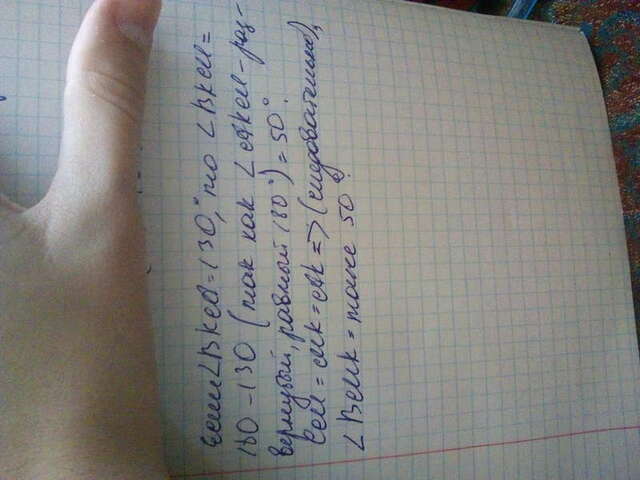 Если ∠BKA = 130°, то ∠BKM =
180 - 130 (так как ∠AKM - раз-
вернутый, равный 180°) = 50°.
CM = MK = AK => (следовательно),
∠BMK = тоже 50°.